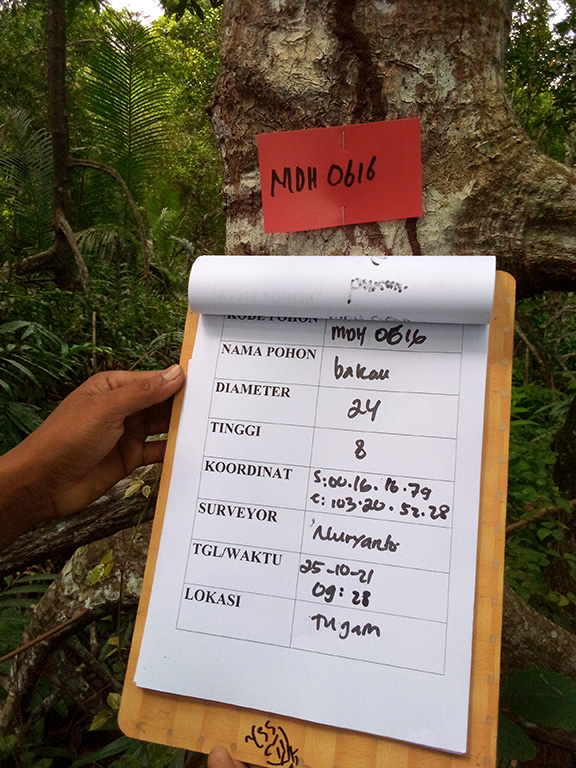 MDH 0616
KODE POHON MDH 0616
NAMA POHON bakau
DIAMETER 24
TINGGI 8
KOORDINAT S:00.16.16.79
E:103.20.52.28
SURVEYOR Nuryanto
TGL/WAKTU 25-10-21
09:28
LOKASI Tugam